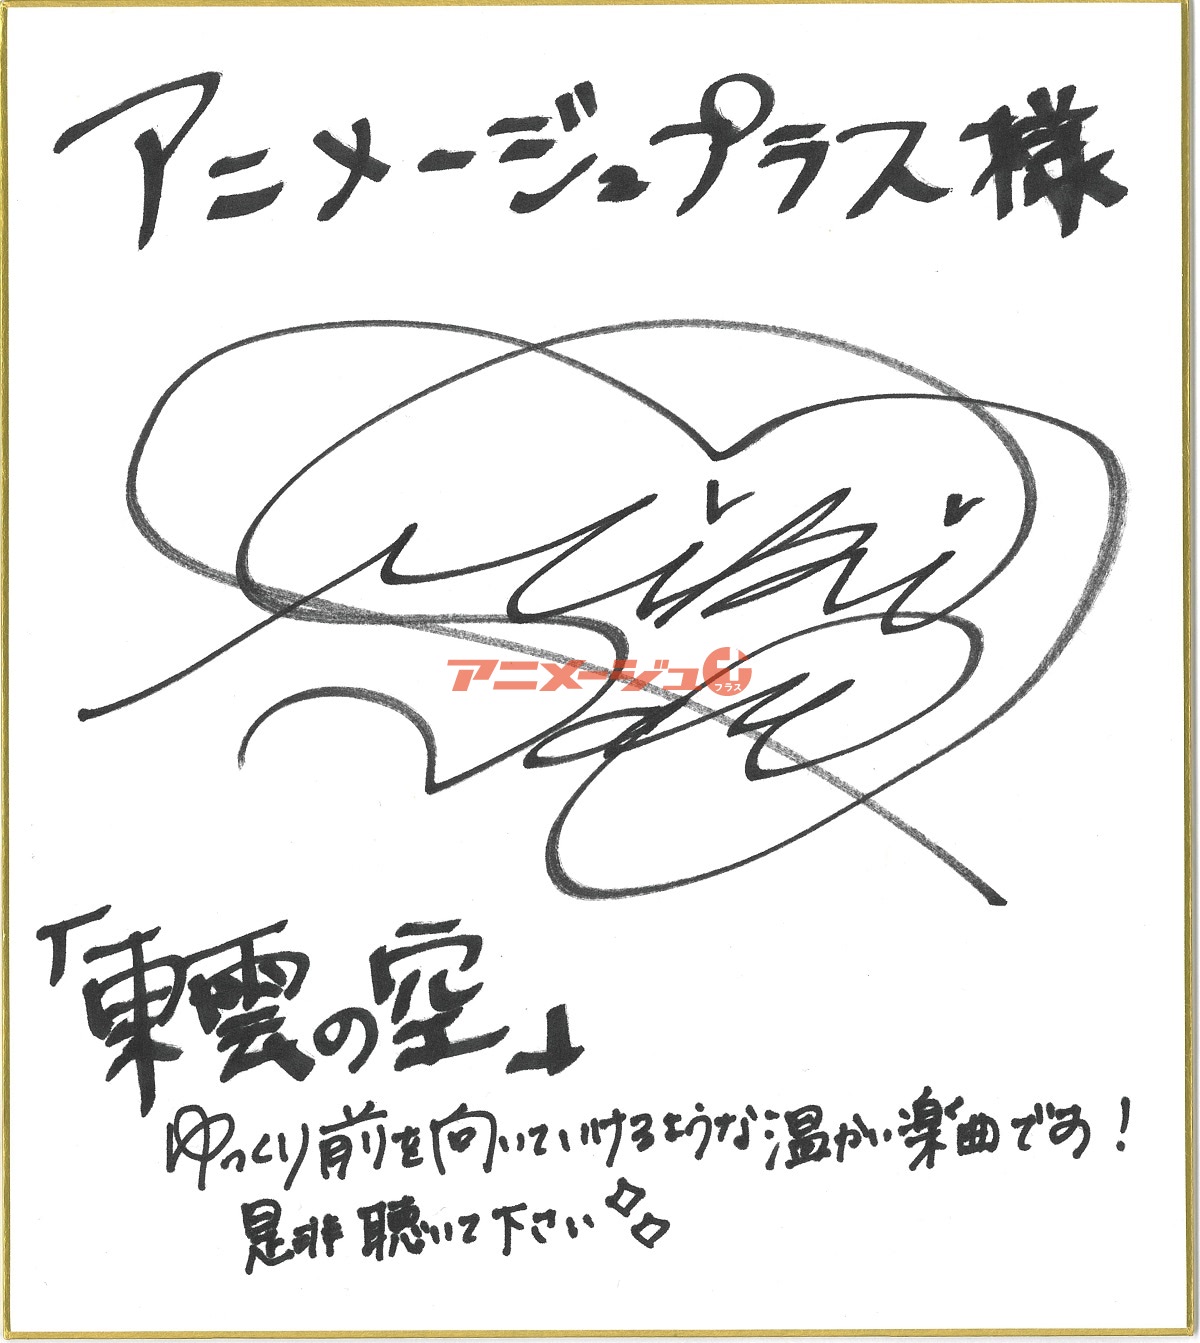 アニメージュプラス様
アニメージュプラス
「東雲の空」
ゆっくり前を向いていけるような温かい楽曲です！
是非聴いて下さい